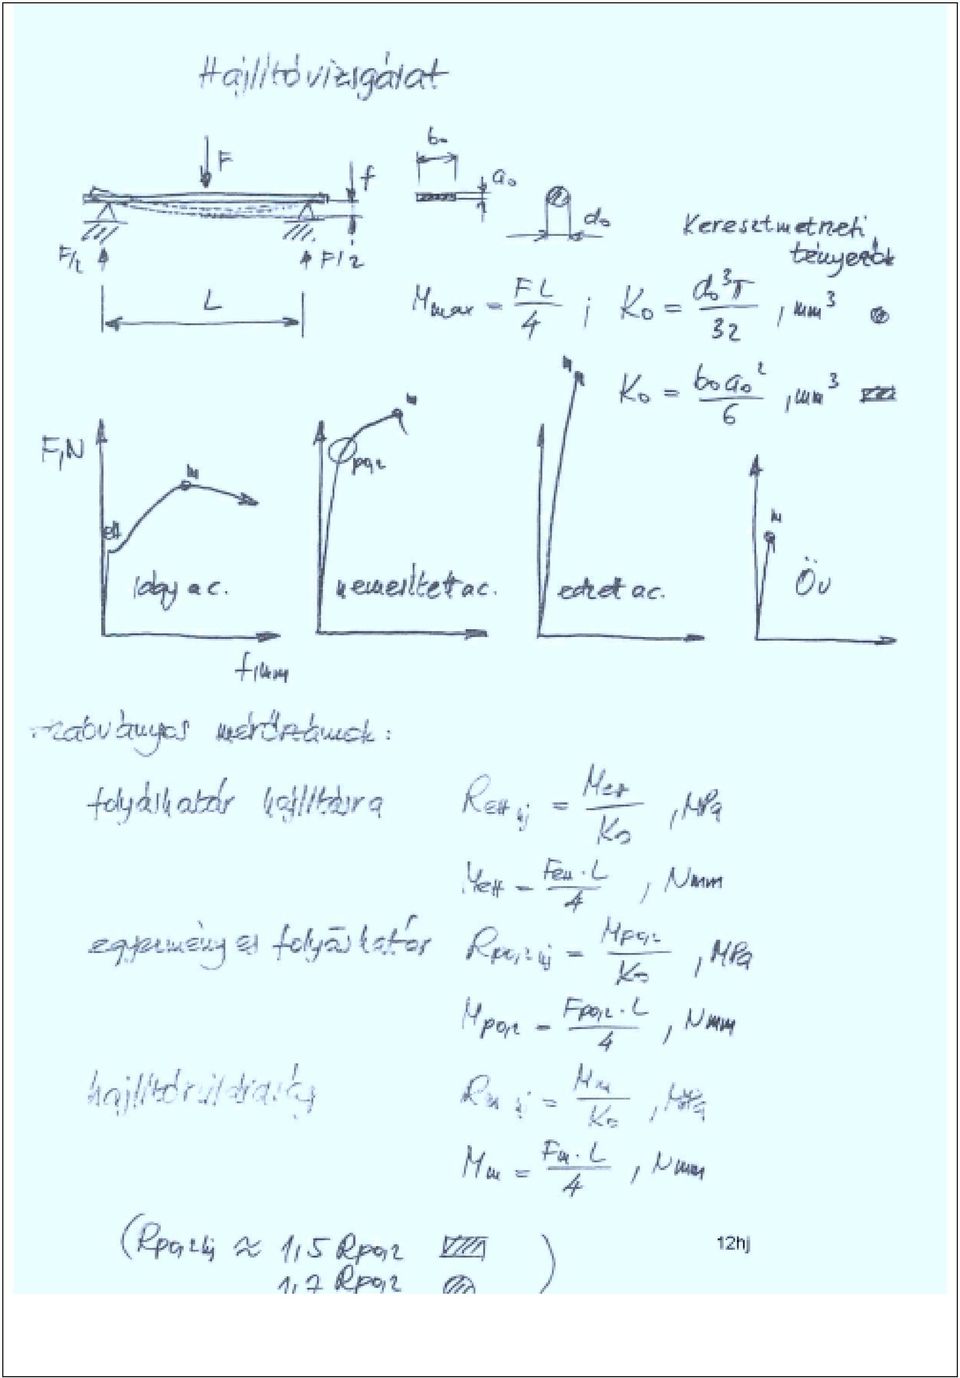 Hajlítóvizsgálat
F
f
b₀
a₀
d₀
F/2
F/2
L
Keresztmetszeti tényezők
M_max = FL/4 ; K₀ = d₀³π/32 , mm³
K₀ = b₀a₀²/6 , mm³
F,N
eH
m
lágy ac.
p0,2
m
nemesített ac.
m
edzett ac.
m
Öv
f,mm
szabványos mérőszámok:
folyáshatár hajlításra R_eH hj = M_eH/K₀ , MPa
M_eH = F_eH · L/4 , Nmm
egyezményes folyáshatár R_p0,2 hj = M_p0,2/K₀ , MPa
M_p0,2 = F_p0,2 · L/4 , Nmm
hajlítószilárdság R_m hj = M_m/K₀ , MPa
M_m = F_m · L/4 , Nmm
(R_p0,2 hj ≈ 1,5 R_p0,2
1,7 R_p0,2 )
12hj